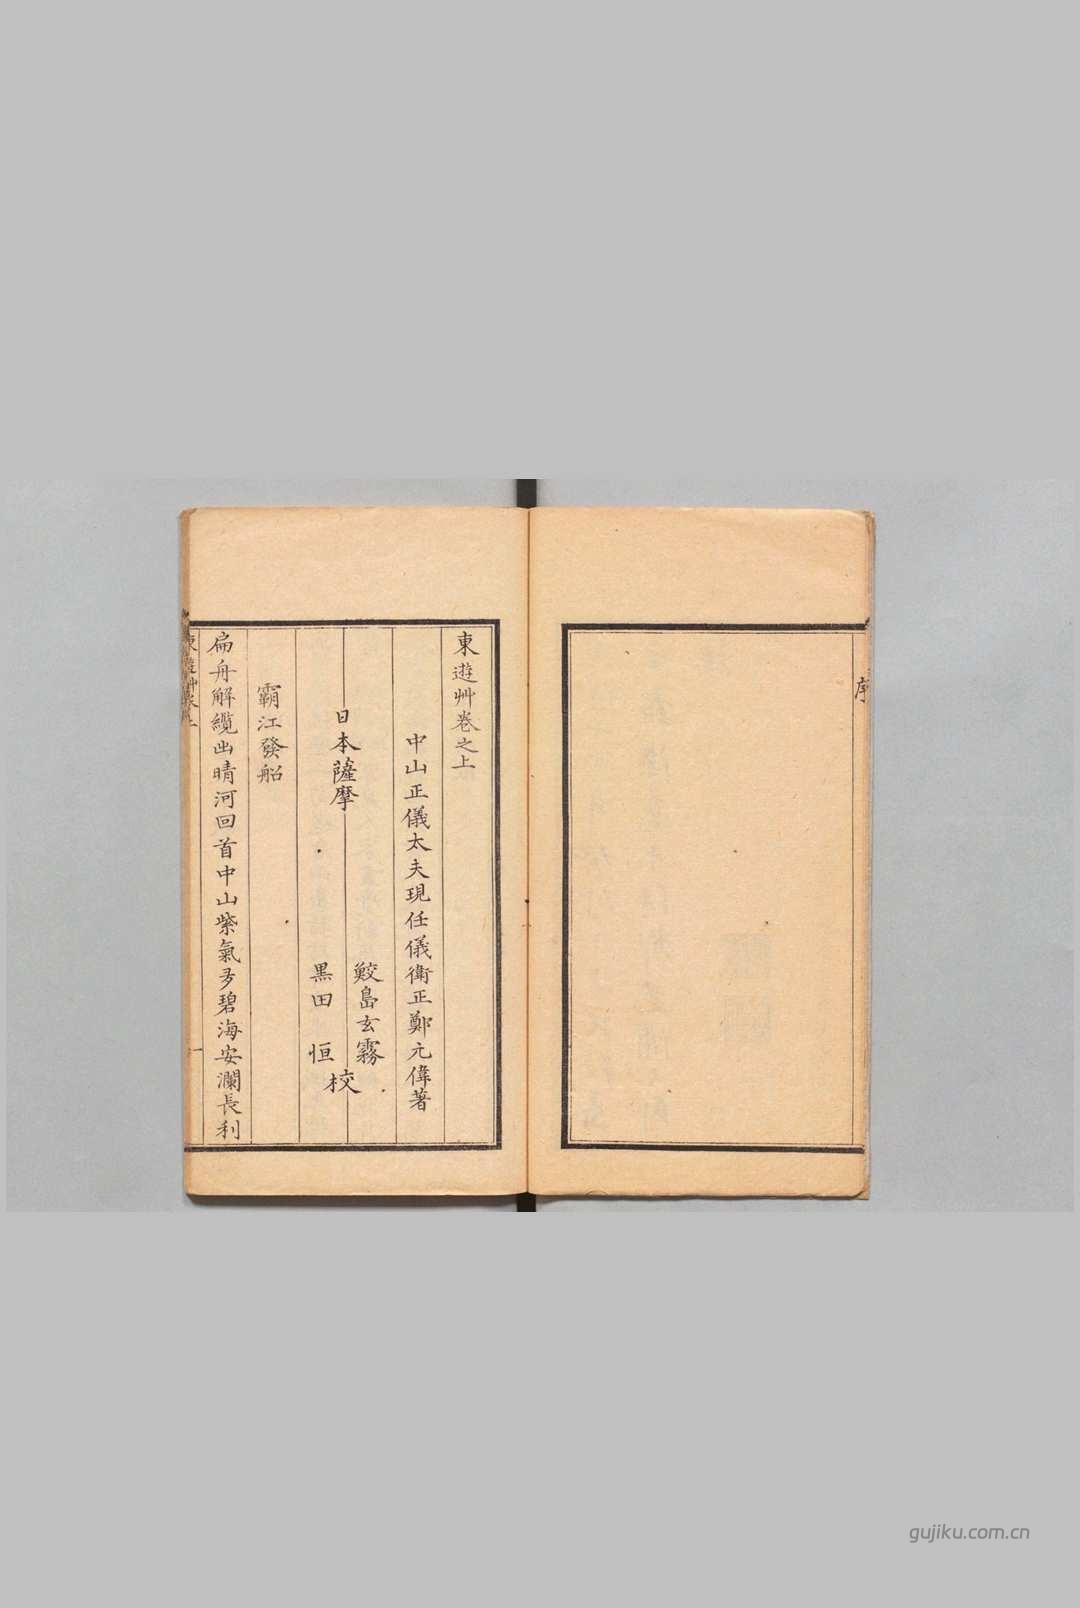 序
東遊艸卷之上
中山正儀太夫現任儀衛正鄭元偉著
日本薩摩
鮫島玄霧
黒田恒
校
霸江發船
扁舟解纜出晴河回首中山紫氣多碧海安瀾長利
東遊艸卷上
一
gujiku.com.cn